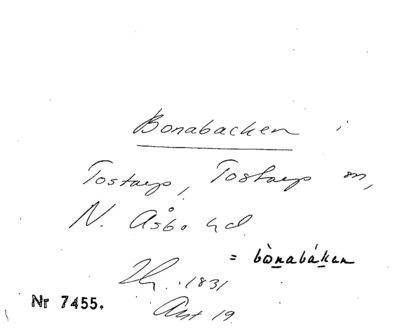 Bonabacken i
Tostarp, Tostarp sn,
N. Åsbo hd
= bònabáken
1831
Nr 7455.
Ant 19